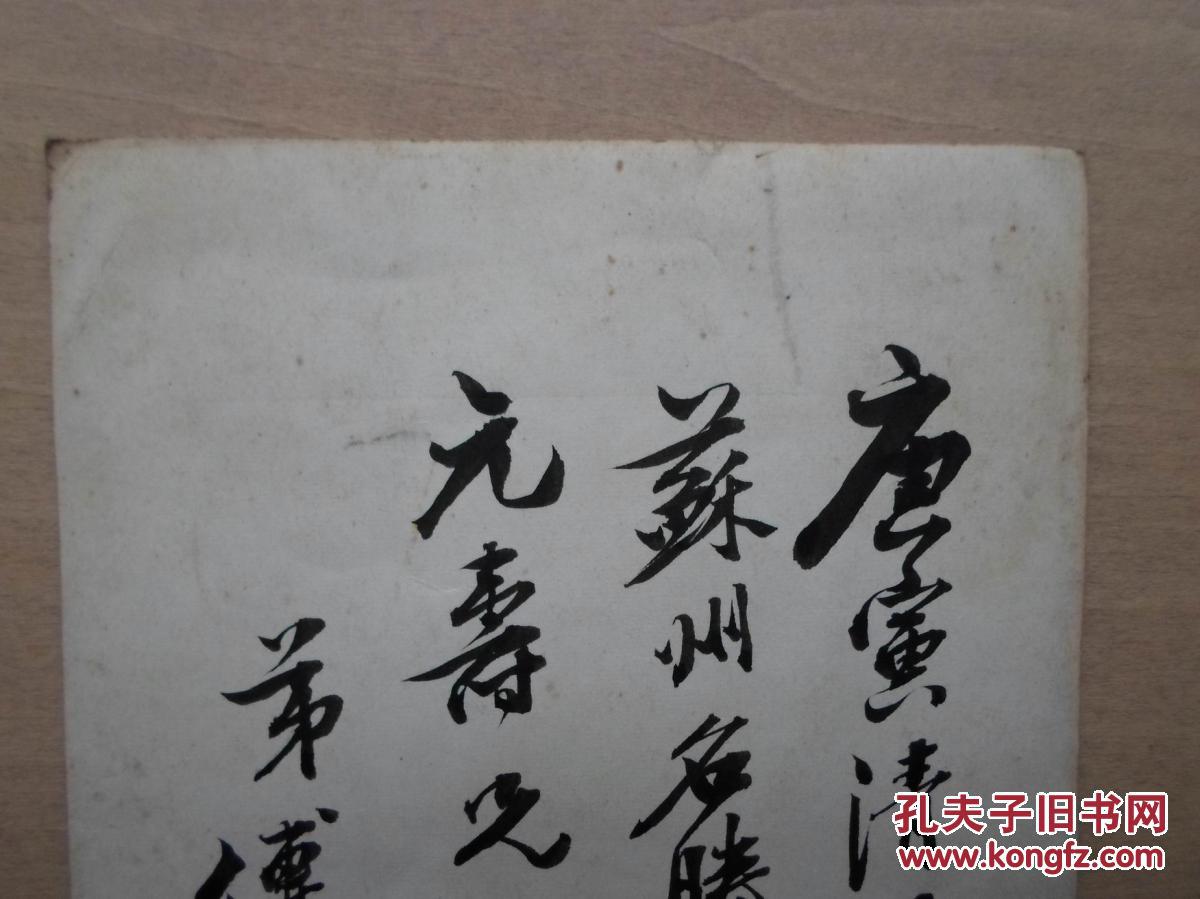 庚寅清
蘇州名勝
元壽兄
弟傅
孔夫子旧书网
www.kongfz.com